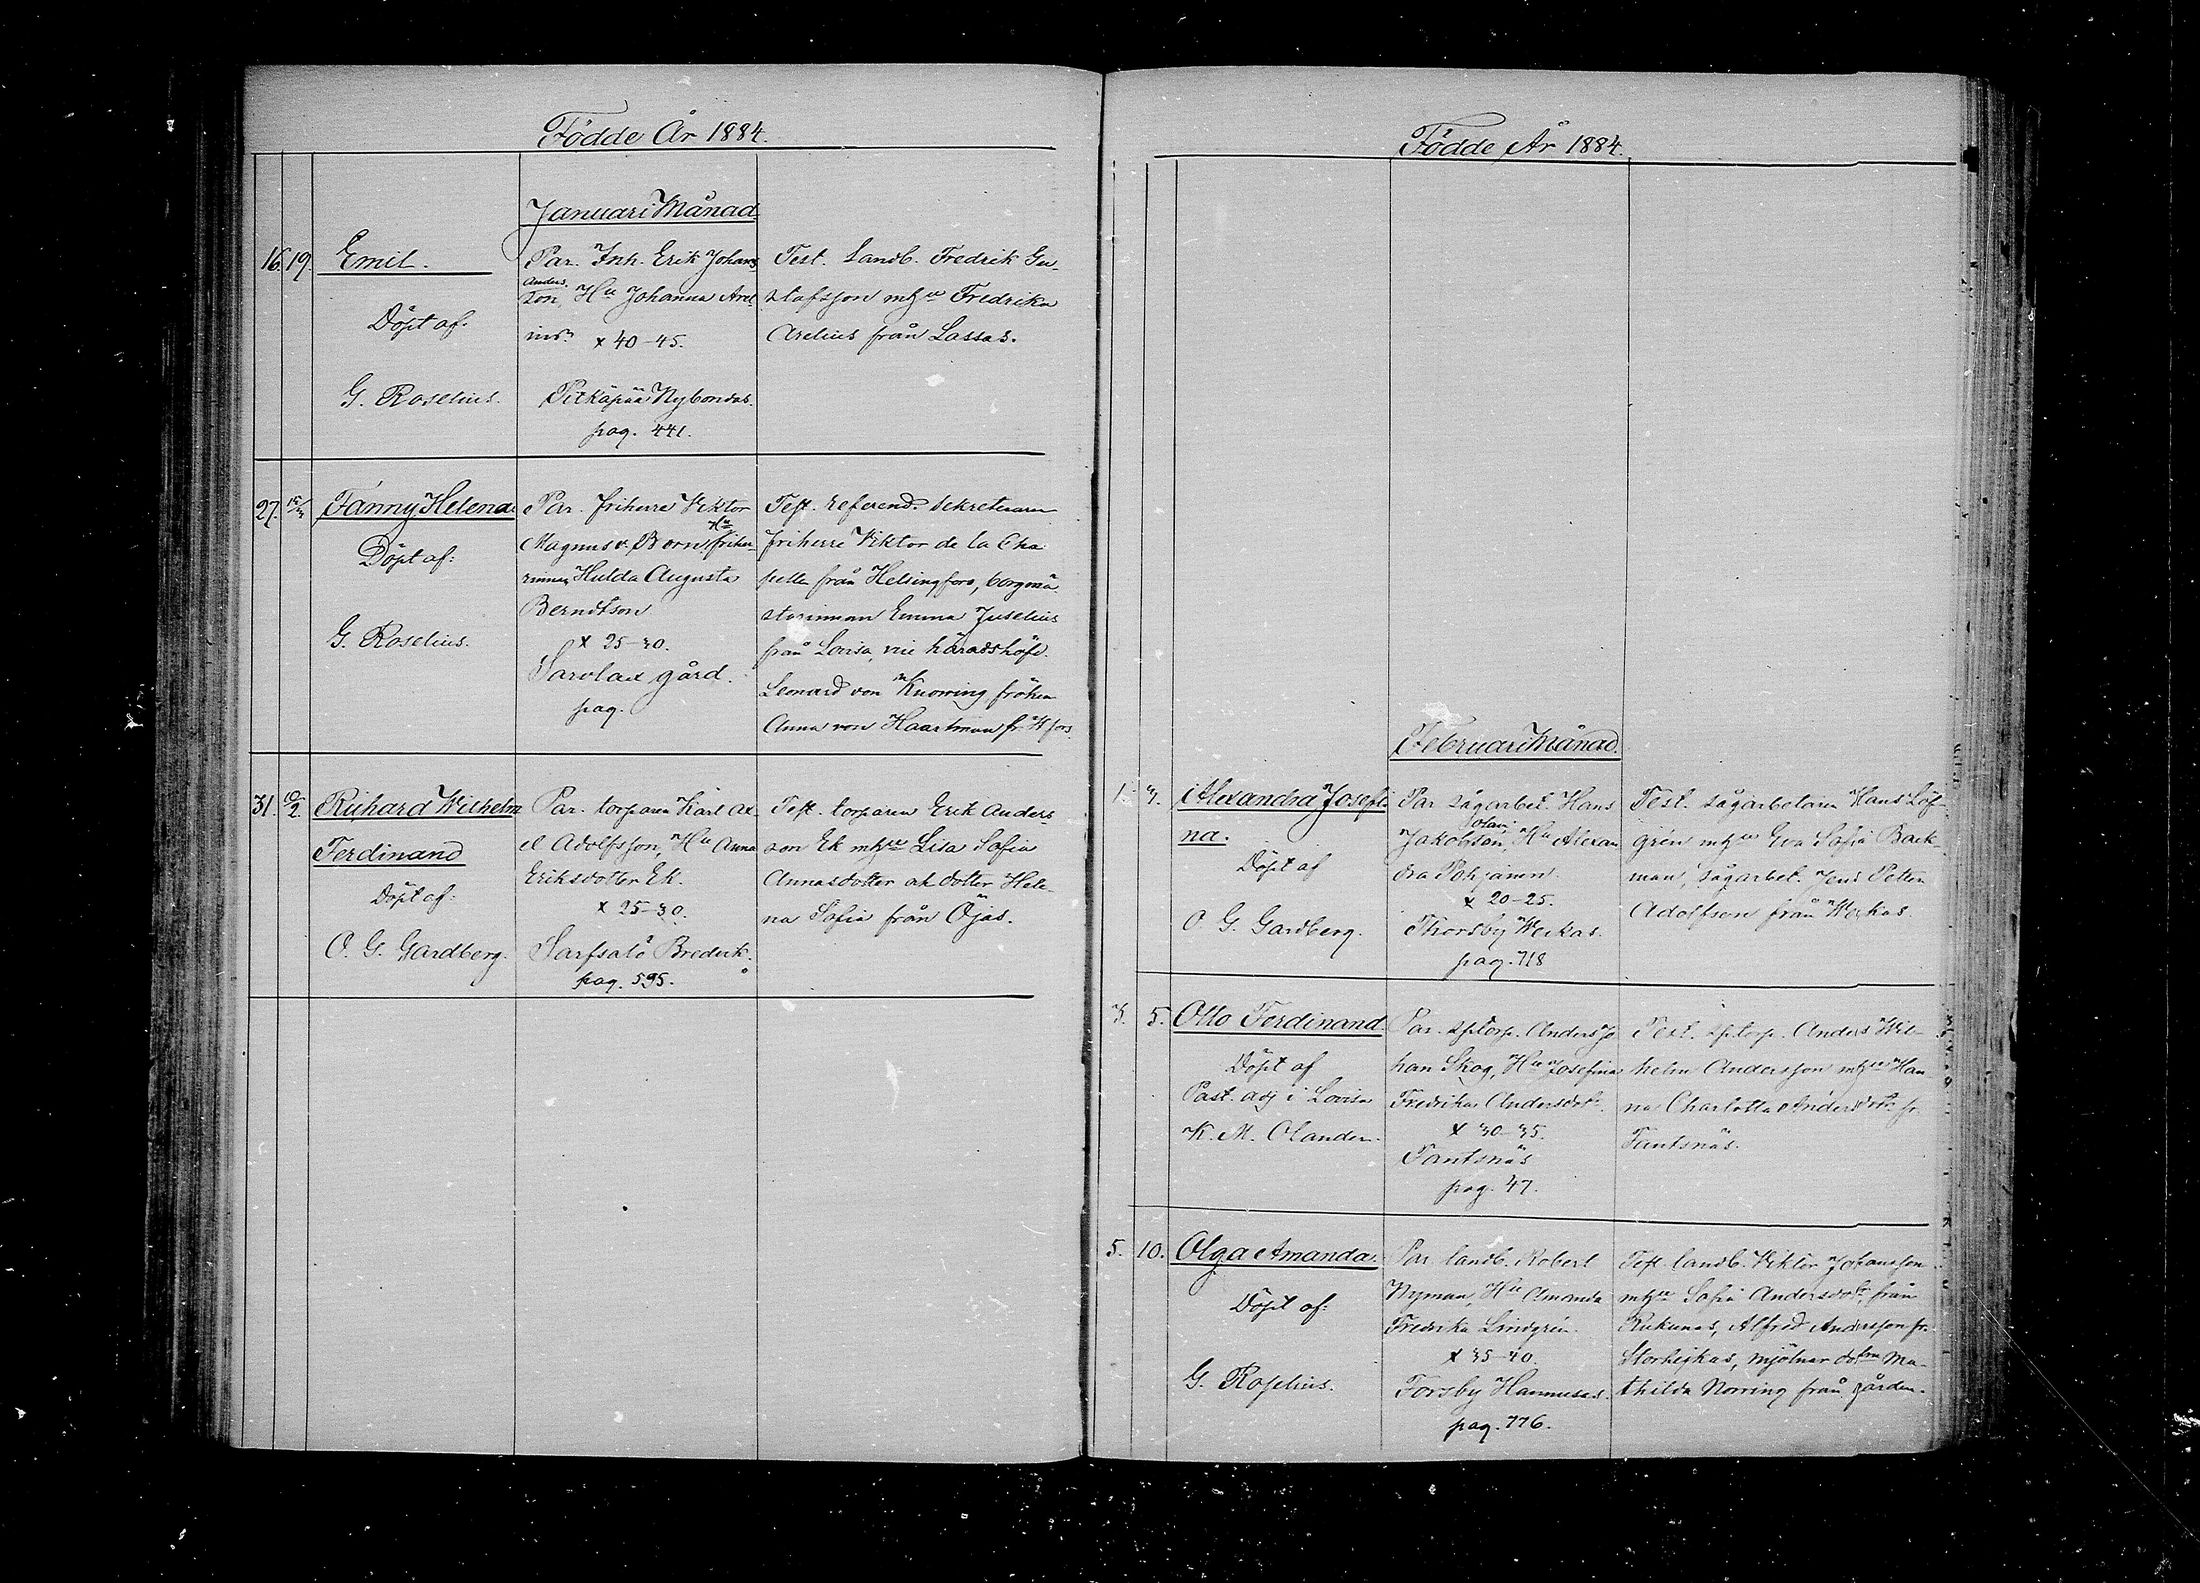 Födde År 1884.
Januari Månad
16. 19. Emil.
Döpt af:
G. Roselius.
Par. Inh. Erik Johans
Anders.
son, Hu Johanna Arel
ius.
x 40-45.
Pitkäpää Nybondas.
pag. 441.
Test. Landb. Fredrik Gu-
stafsson mhu Fredrika
Arelius från Lassas.
27. Fanny Helena.
Döpt af:
G. Roselius.
Par. friherre Viktor
Hu
Magnus v. Born friher-
rinnan Hulda Augusta
Berndtson
x 25-30.
Sarvlax gård.
pag.
Test. referend. sekreteraren
friherre Viktor de la Cha
pelle från Helsingfors, borgmä
storinnan Emma Juselius
från Lovisa, vie häradshöfd.
Leonard von Knorring, fröken
Anna von Haartman fr. Hfors.
31. 10/2. Richard Wilhelm
Ferdinand
Döpt af:
O. G. Gardberg.
Par. torparen Karl Ax
el Adolfsson, Hu Anna
Eriksdotter Ek.
x 25-30.
Sarfsalö Brederk.
pag. 595.
Test. torparen Erik Anders
son Ek mhu Lisa Sofia
Annasdotter ok dotter Hele-
na Sofia från Öjas.
Födde År 1884.
Februari Månad.
1. Alexandra Josefi
na.
Döpt af
O. G. Gardberg.
Par sågarbet. Hans
Jakobson, Hu Alexan
dra Pohjanen.
x 20-25.
Thorsby Weckas.
pag. 718
Test. sågarbetaren Hans Löf
grén mhu Eva Sofia Back-
man, sågarbet. Jens Petter
Adolfson från Weckas.
3. 5. Otto Ferdinand
Döpt af
Past. adj i Lovisa
K. M. Olander.
Par. sptorp. Anders Jo
han Skog, Hu Josefina
Fredrika Andersdotr.
x 30-35.
Tantsnäs
pag. 47.
Test. sptorp. Anders Wil-
helm Andersson mhu Han
na Charlotta Andersdotr fr.
Tantsnäs.
5. 10. Olga Amanda.
Döpt af:
G. Roselius.
Par landb. Robert
Nyman, Hu Amanda
Fredrika Lindgrén.
x 35-40.
Forsby Hannusas.
pag. 776.
Test landb. Viktor Johansson
mhu Sofia Andersdotr, från
Rukunas, Alfred Andersson fr.
Storheikas, mjölnar dotren Ma-
thilda Norring från gården.